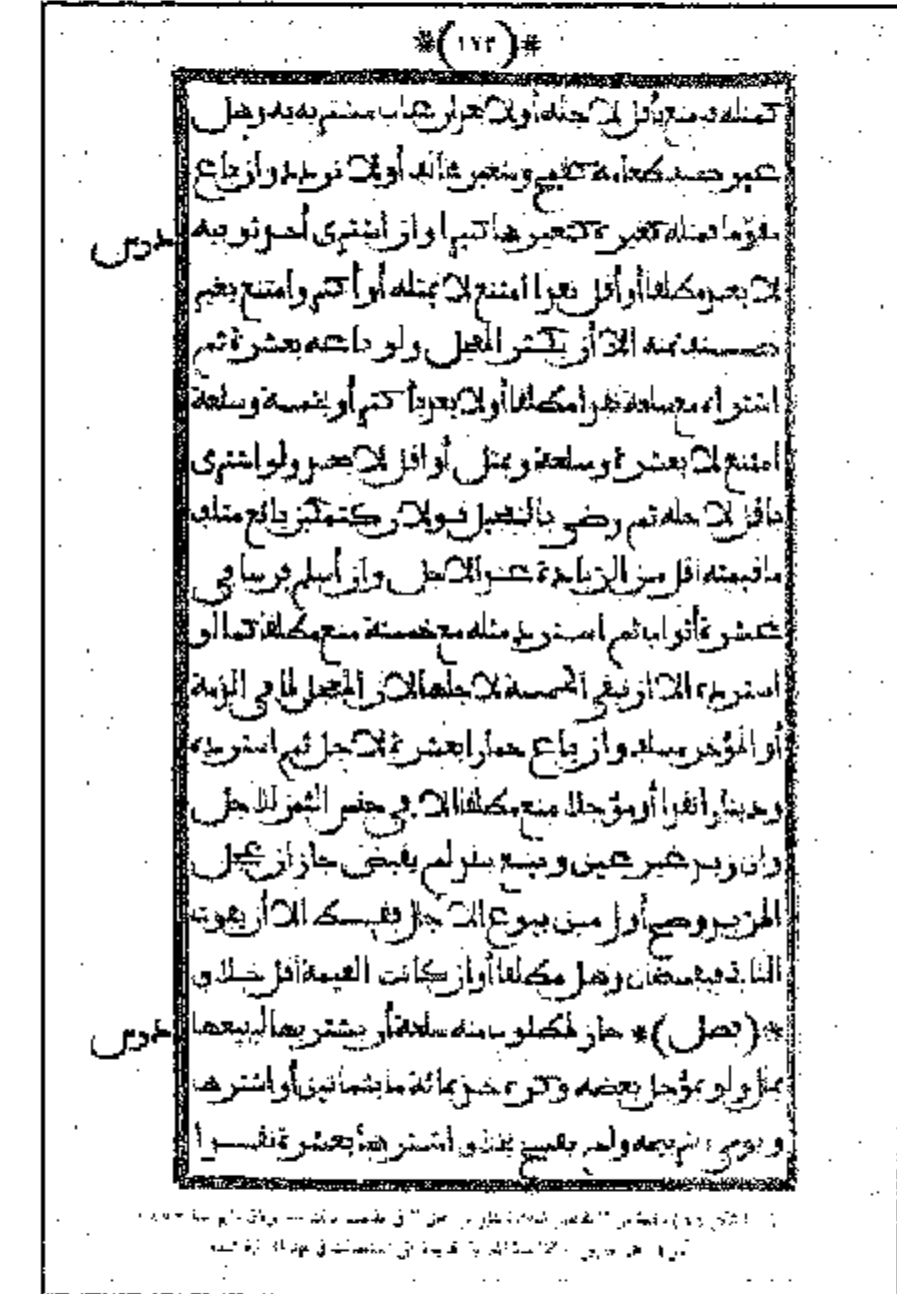 *(١٧٣)*
كمثله فيمنع بأقل لأجله أو لأبعد إن غاب مشتريه به وهل
غير صنف طعامه كقمح وشعير مخالف أو لا تردد وإن باع
مقوما فمثله كغيره كتغيرها كثيرا وإن اشترى أحد ثوبيه
لأبعد مطلقا أو أقل نقدا امتنع لا بمثله أو أكثر وامتنع بغير
صنف ثمنه إلا أن يكثر المعجل ولو باعه بعشرة ثم
اشتراه مع سلعة نقدا مطلقا أو لأبعد بأكثر أو بخمسة وسلعة
امتنع لا بعشرة وسلعة وبمثل أو أقل لأبعد ولو اشترى
بأقل لأجله ثم رضي بالتعجيل قولان كتمكين بائع متلف
ما قيمته أقل من الزيادة عند الأجل وإن أسلم فرسا في
عشرة أثواب ثم استرد مثله مع خمسة منع مطلقا كما لو
استرده إلا أن تبقى الخمسة لأجلها لأن المعجل لما في الذمة
أو المؤخر مسلف وإن باع حمارا بعشرة لأجل ثم استرده
ودينارا نقدا أو مؤجلا منع مطلقا إلا في جنس الثمن للأجل
وإن زيد غير عين وبيع بنقد لم يقبض جاز إن عجل
المزيد وصح أول من بيوع الآجال فقط إلا أن يفوت
الثاني فيفسخان وهل مطلقا أو إن كانت القيمة أقل خلاف
*(فصل)* جاز لمطلوب منه سلعة أن يشتريها ليبيعها
بمال ولو بمؤجل بعضه وكره خذ بمائة ما بثمانين أو اشترها
ويومئ لتربيحه ولم يفسخ بخلاف اشترها بعشرة نقدا
درس
درس